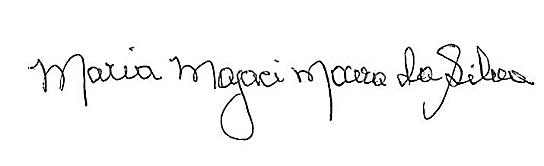 Maria Magaci Moura da Silva